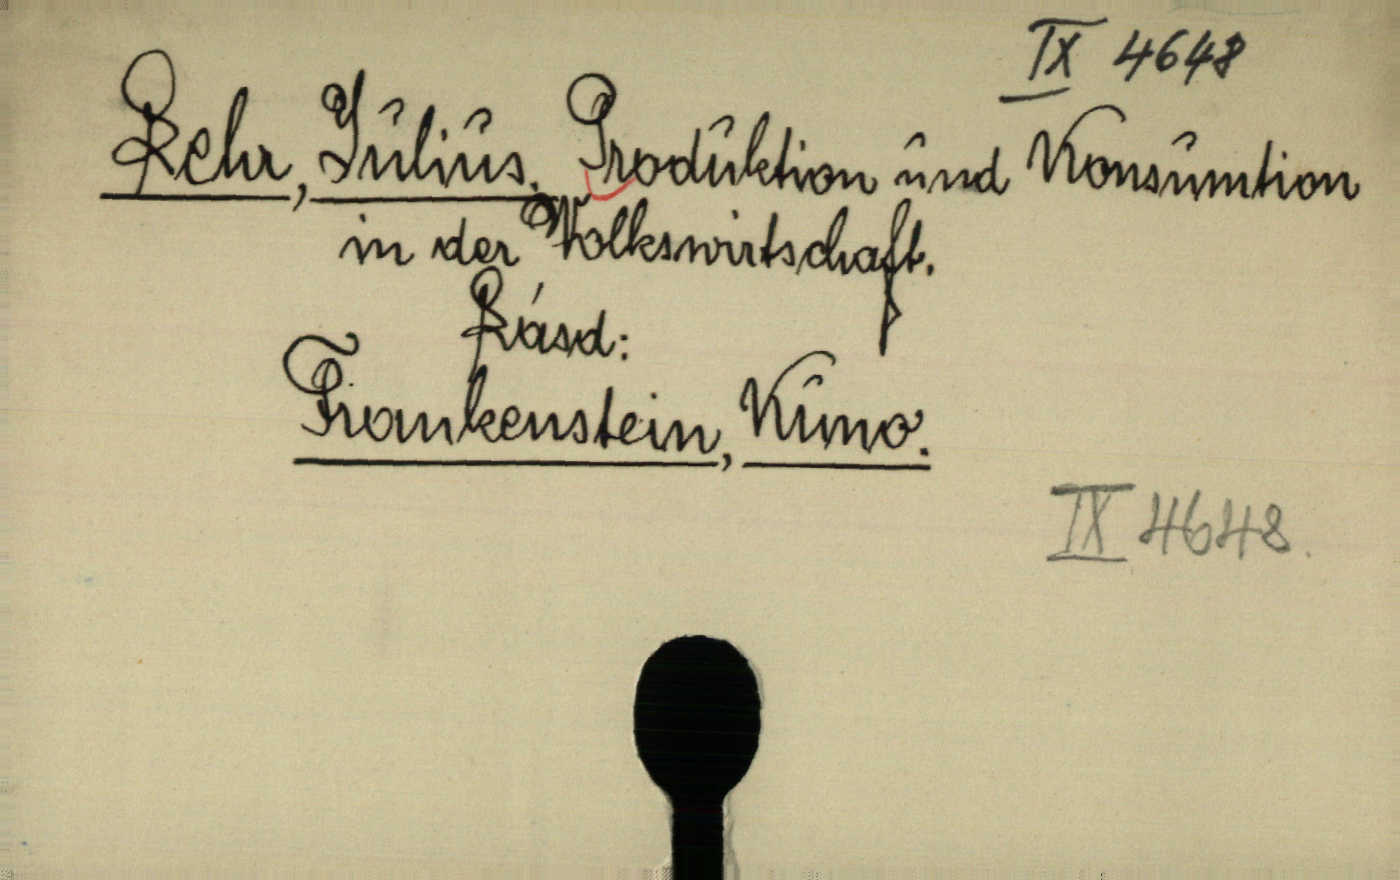 IX 4648
Kehr, Julius. Produktion und Konsumtion
in der Volkswirtschaft.
Lásd:
Frankenstein, Kuno.
IX 4648.